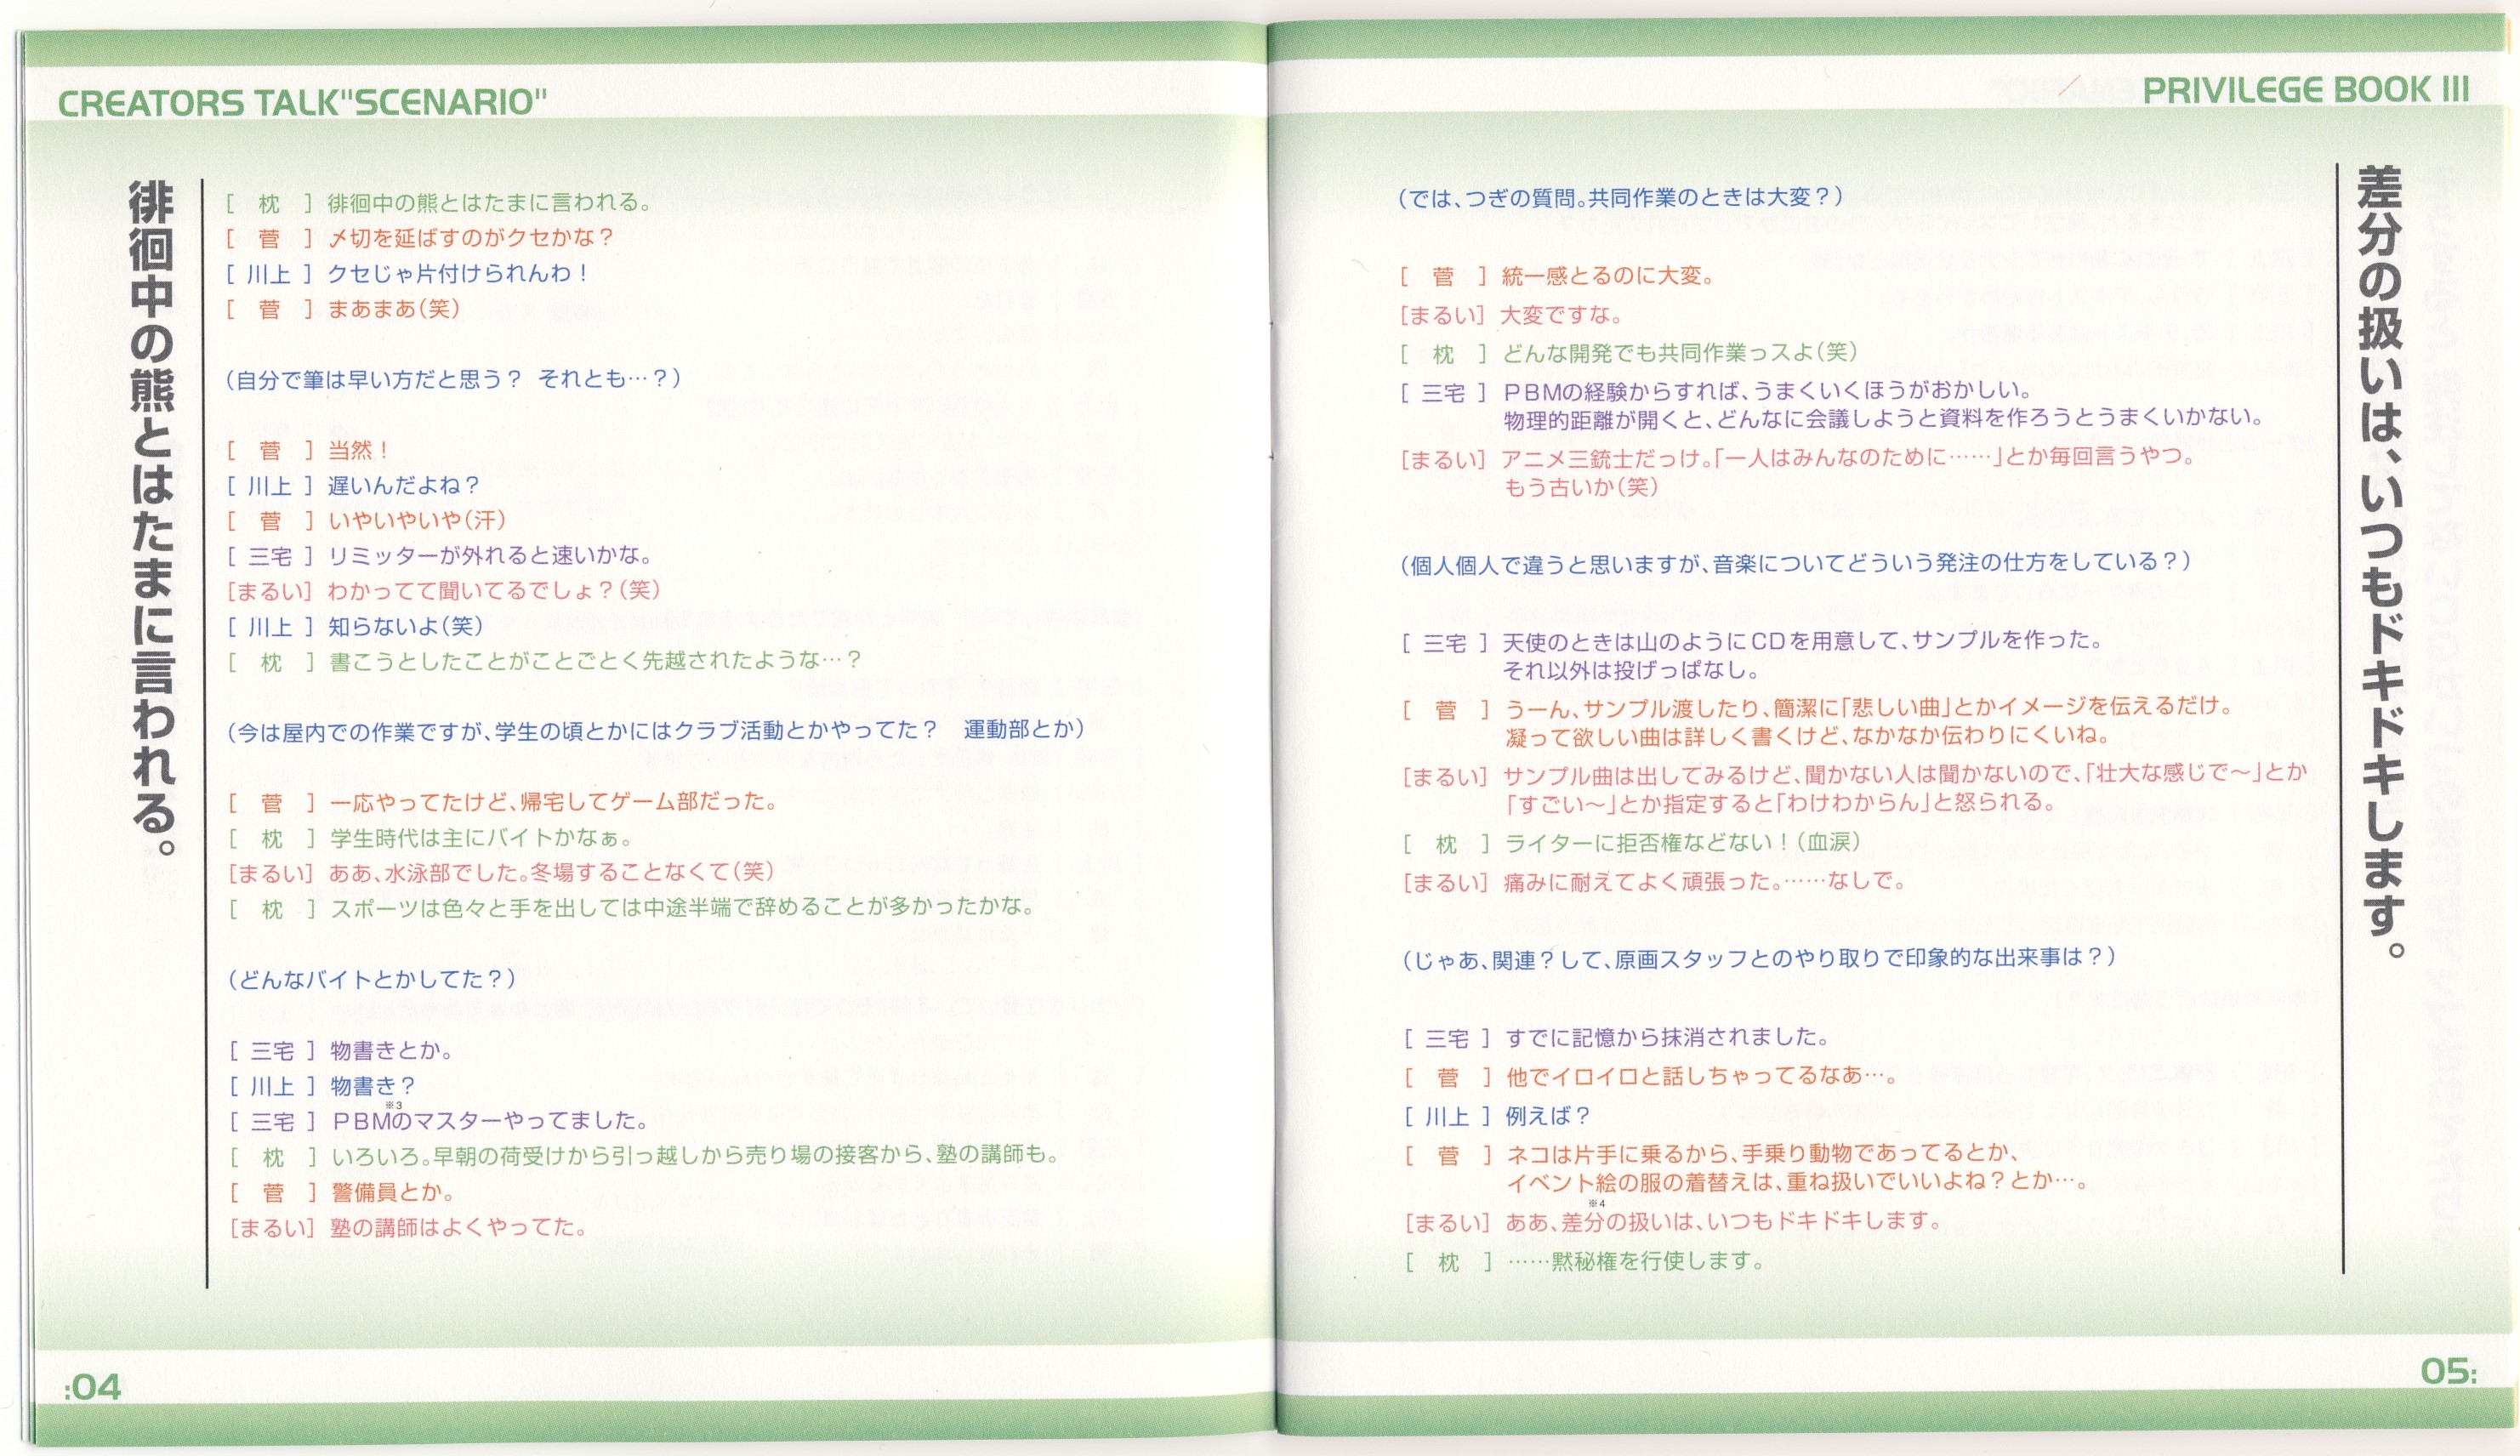 CREATORS TALK"SCENARIO"
徘徊中の熊とはたまに言われる。
[ 枕 ] 徘徊中の熊とはたまに言われる。
[ 菅 ] 〆切を延ばすのがクセかな？
[ 川上 ] クセじゃ片付けられんわ！
[ 菅 ] まあまあ（笑）
（自分で筆は早い方だと思う？ それとも…？）
[ 菅 ] 当然！
[ 川上 ] 遅いんだよね？
[ 菅 ] いやいやいや（汗）
[ 三宅 ] リミッターが外れると速いかな。
[まるい] わかってて聞いてるでしょ？（笑）
[ 川上 ] 知らないよ（笑）
[ 枕 ] 書こうとしたことがことごとく先越されたような…？
（今は屋内での作業ですが、学生の頃とかにはクラブ活動とかやってた？　運動部とか）
[ 菅 ] 一応やってたけど、帰宅してゲーム部だった。
[ 枕 ] 学生時代は主にバイトかなぁ。
[まるい] ああ、水泳部でした。冬場することなくて（笑）
[ 枕 ] スポーツは色々と手を出しては中途半端で辞めることが多かったかな。
（どんなバイトとかしてた？）
[ 三宅 ] 物書きとか。
[ 川上 ] 物書き？
※3
[ 三宅 ] PBMのマスターやってました。
[ 枕 ] いろいろ。早朝の荷受けから引っ越しから売り場の接客から、塾の講師も。
[ 菅 ] 警備員とか。
[まるい] 塾の講師はよくやってた。
:04
PRIVILEGE BOOK III
差分の扱いは、いつもドキドキします。
（では、つぎの質問。共同作業のときは大変？）
[ 菅 ] 統一感とるのに大変。
[まるい] 大変ですな。
[ 枕 ] どんな開発でも共同作業っスよ（笑）
[ 三宅 ] PBMの経験からすれば、うまくいくほうがおかしい。
物理的距離が開くと、どんなに会議しようと資料を作ろうとうまくいかない。
[まるい] アニメ三銃士だっけ。「一人はみんなのために……」とか毎回言うやつ。
もう古いか（笑）
（個人個人で違うと思いますが、音楽についてどういう発注の仕方をしている？）
[ 三宅 ] 天使のときは山のようにCDを用意して、サンプルを作った。
それ以外は投げっぱなし。
[ 菅 ] うーん、サンプル渡したり、簡潔に「悲しい曲」とかイメージを伝えるだけ。
凝って欲しい曲は詳しく書くけど、なかなか伝わりにくいね。
[まるい] サンプル曲は出してみるけど、聞かない人は聞かないので、「壮大な感じで〜」とか
「すごい〜」とか指定すると「わけわからん」と怒られる。
[ 枕 ] ライターに拒否権などない！（血涙）
[まるい] 痛みに耐えてよく頑張った。……なしで。
（じゃあ、関連？して、原画スタッフとのやり取りで印象的な出来事は？）
[ 三宅 ] すでに記憶から抹消されました。
[ 菅 ] 他でイロイロと話しちゃってるなあ…。
[ 川上 ] 例えば？
[ 菅 ] ネコは片手に乗るから、手乗り動物であってるとか、
イベント絵の服の着替えは、重ね扱いでいいよね？とか…。
※4
[まるい] ああ、差分の扱いは、いつもドキドキします。
[ 枕 ] ……黙秘権を行使します。
05: